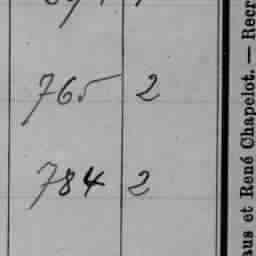 765 2
784 2
aus et René Chapelot. — Recr